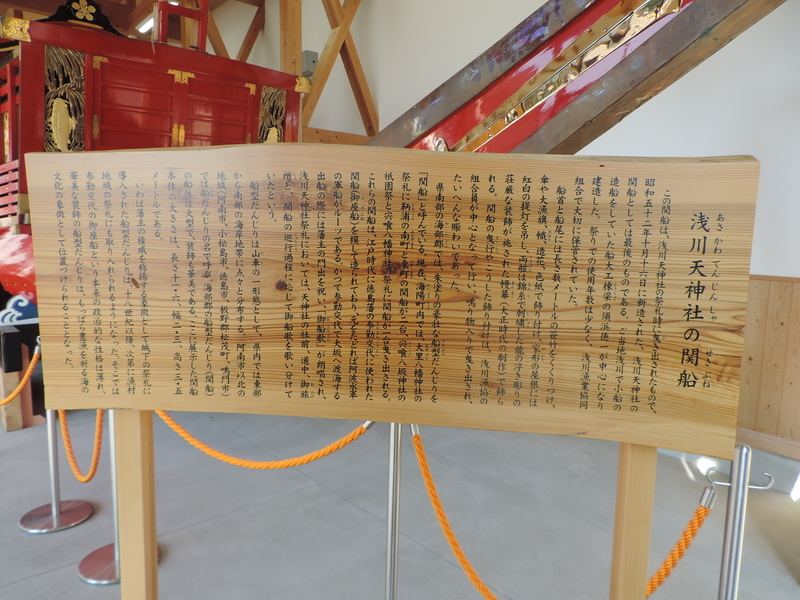 浅川天神社の関船
あさかわてんじんしゃ
せきぶね
この関船は、浅川天神社の祭礼時に曳き出されたもので、
昭和五十二年十月十六日に新造された、浅川天神社の
関船としては最後のものである。ご当地浅川で小船の
造船をしていた船大工棟梁の須浜徳一が中心になり
建造した。祭りでの使用年数は少なく、浅川漁業協同
組合で大切に保存されていた。
船首と船尾には長さ数メートルの世持をくくりつけ、
傘や大漁旗、幟、造花や色紙で飾り付け、家形の屋根には
紅白の提灯を吊し、両舷は錦糸で刺繍した龍の浮き彫りの
荘厳な装飾が施された幔幕(大正時代の制作)で飾ら
れる。関船の曳行やこうした飾り付けは、浅川漁協の
組合員が中心となって行い、鳴り物入りで曳き出され、
たいへんな賑わいであった。
県南部の海部郡では、朱塗りの豪壮な船型だんじりを
「関船」と呼んでいる。現在、海陽町内では大里八幡神社の
祭礼に鞆浦の南町と東町の関船が二台、宍喰八坂神社の
祇園祭と宍喰八幡神社の祭礼に関船が一台曳き出される。
これらの関船は、江戸時代、徳島藩の参勤交代に使われた
関船(御座船)を模して造られており、元をただせば阿波水軍
の軍船がルーツである。かつて参勤交代で大坂へ渡海する
出船の際には藩主の門出を祝い、「御船歌」が朗唱され、
浅川天神社祭礼においては、天神社の社前、道中、御旅
所と、関船の巡行過程に応じて御船歌を歌い分けて
いたという。
船型だんじりは山車の一形態として、県内では東部
から南部の海岸地帯に点々と分布する。阿南市以北の
地域(阿南市、小松島市、徳島市、板野郡松茂町、鳴門市)
では船だんじりの名で呼ぶ。海部郡の船型だんじり(関船)
の船体は大型で、装飾も華美である。ここに展示した関船
本体の大きさは、長さ十一・六、幅二・三、高さ三・五
メートルである。
いわば藩主の権威を称揚する象徴として城下の祭礼に
導入された船型だんじりは、十八世紀以降、次第に漁村
地域の祭礼にも取り入れられるようになった。そこでは
参勤交代の御座船という本来の政治的な性格は薄れ、
華美な装飾の船型だんじりは、もっぱら豊漁を祈る海の
文化の象徴として位置づけられることとなった。